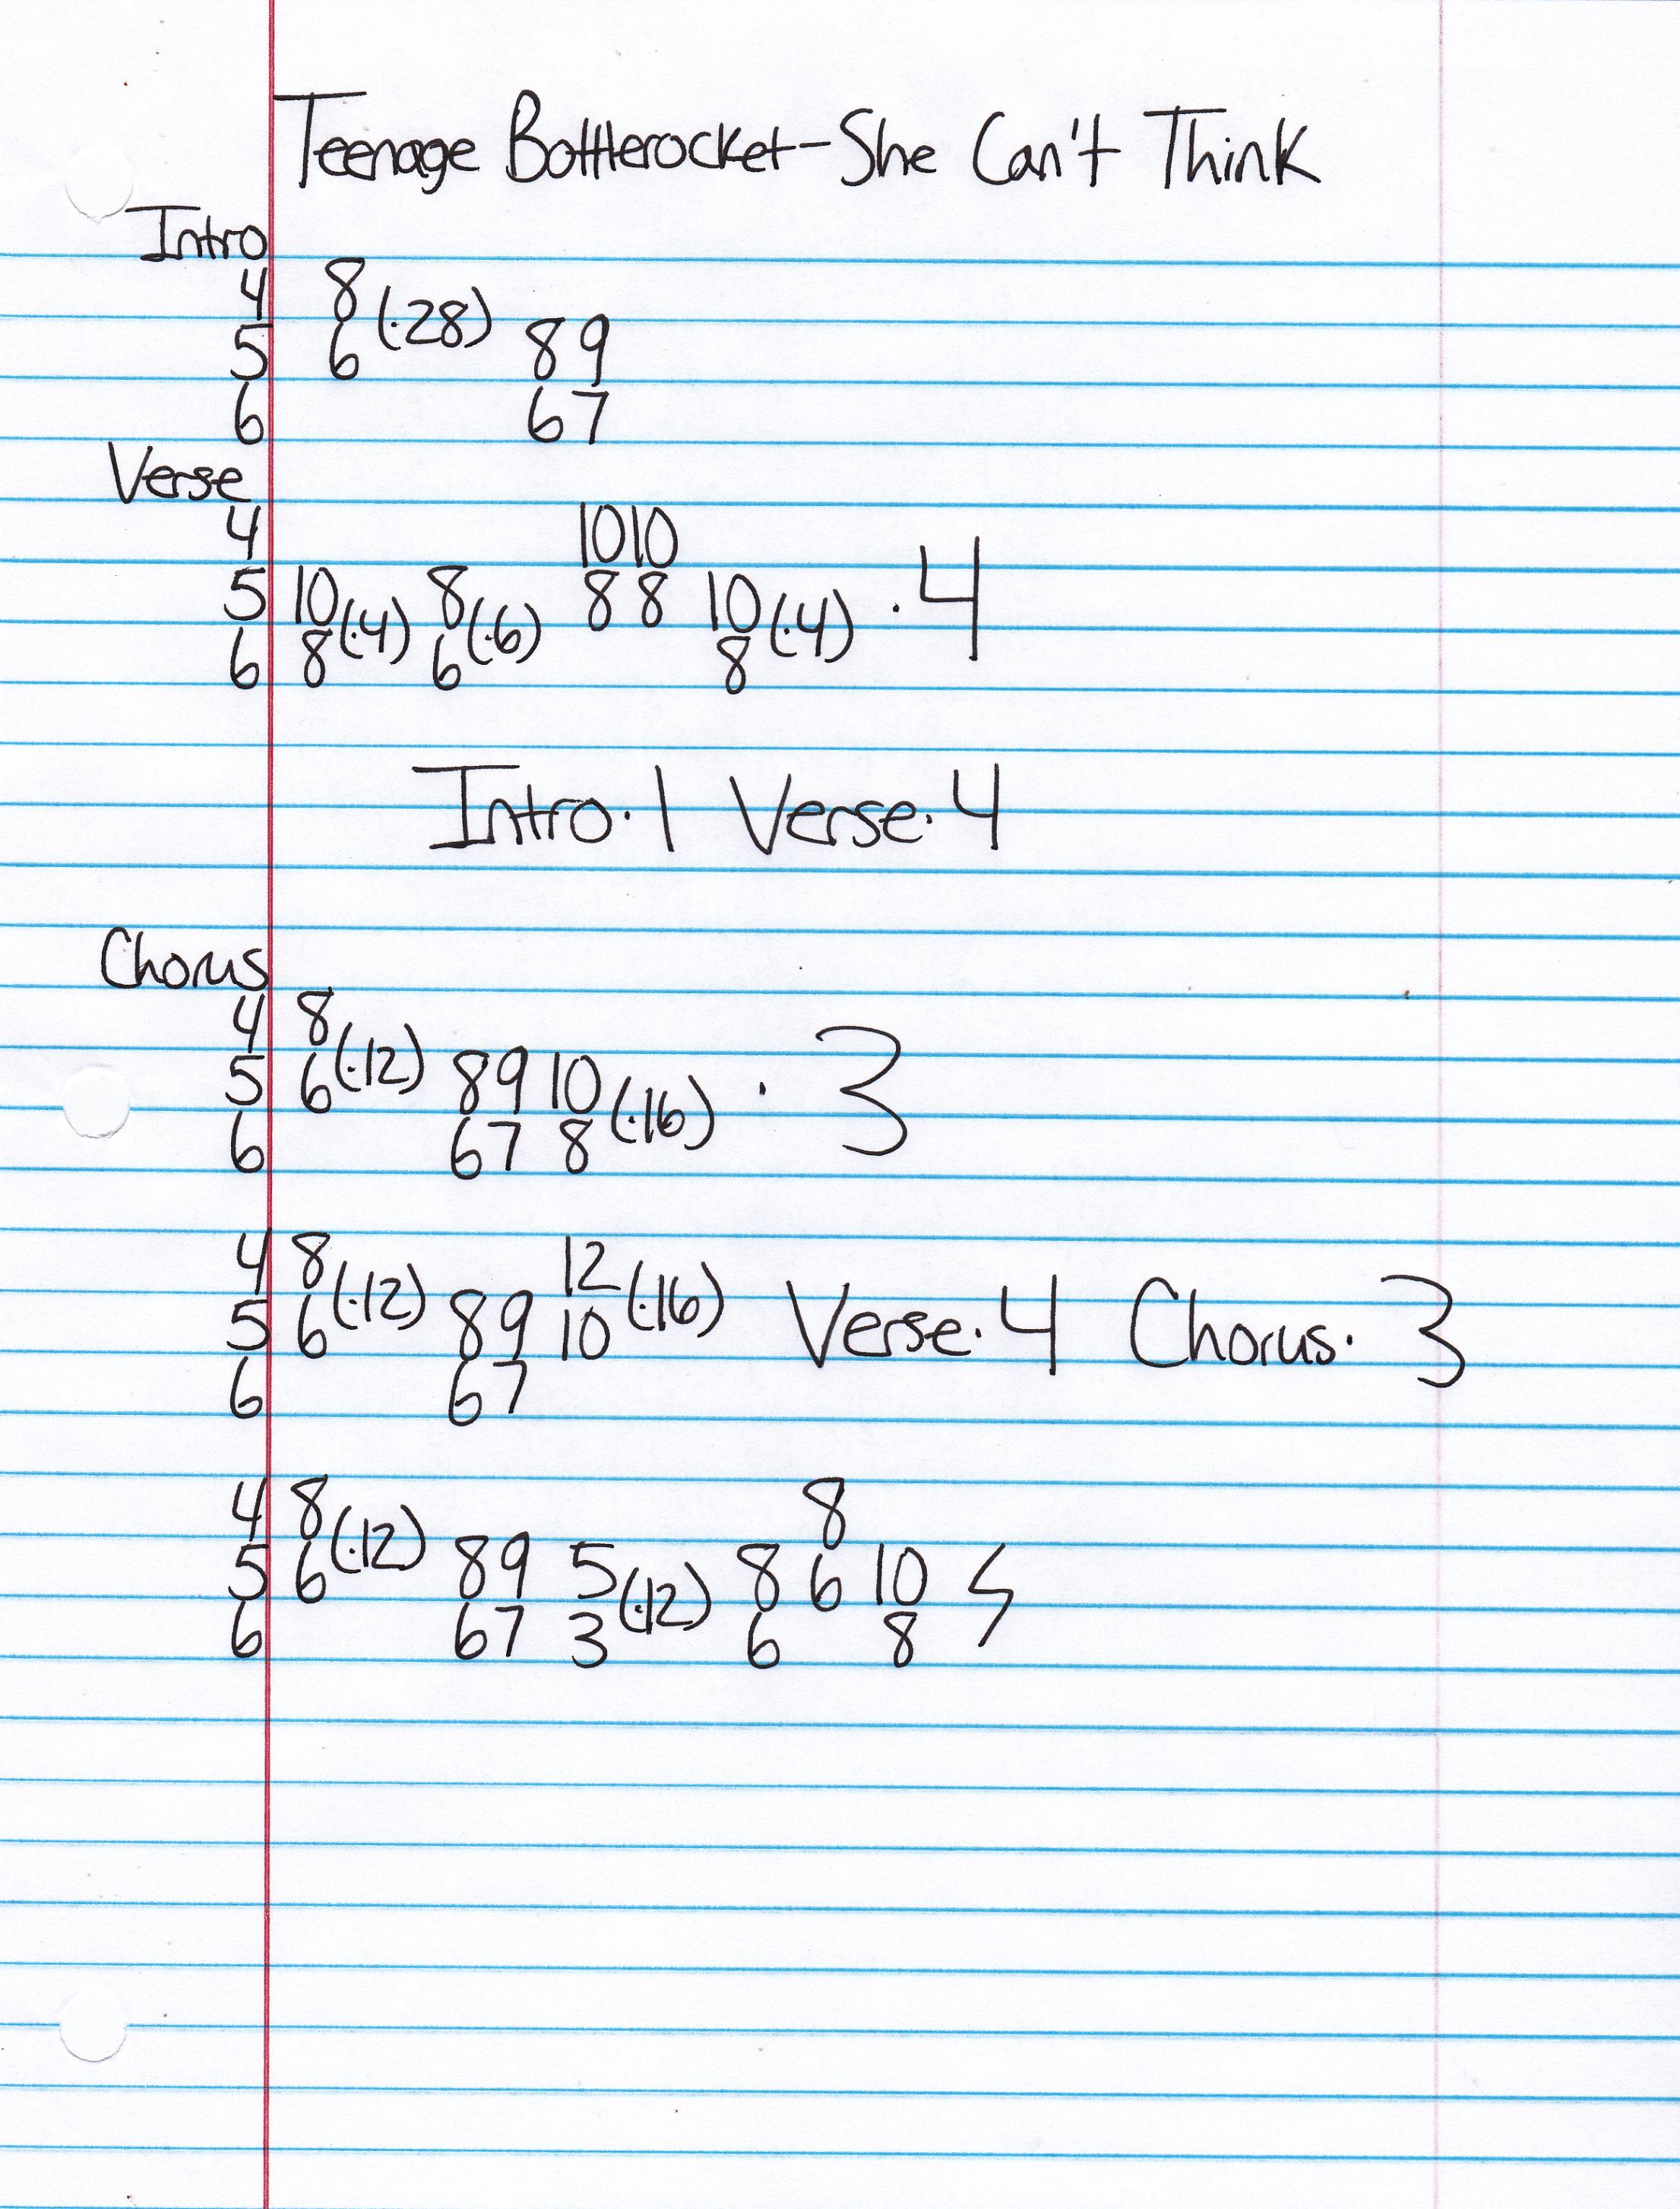 Teenage Bottlerocket-She Can't Think
Intro
4 8
5 6 (·28) 8 9
6 6 7
Verse
4 10 10
5 10 (·4) 8 (·6) 8 8 10 (·4) · 4
6 8 6 8
Intro·1 Verse·4
Chorus
4 8
5 6 (·12) 8 9 10 (·16) · 3
6 6 7 8
4 8 (·12) 12 (·16)
5 6 8 9 10 Verse·4 Chorus·3
6 6 7
4 8 (·12) 8
5 6 8 9 5 (·12) 8 6 10
6 6 7 3 6 8